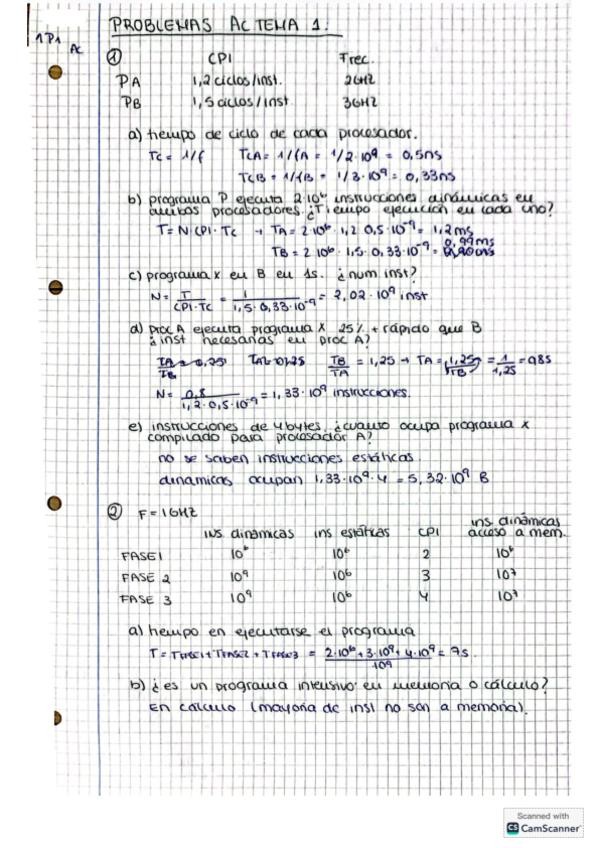 PROBLEMAS AC TEMA 1:
1P1
AC
① CPI Frec.
PA 1,2 ciclos/inst. 2GHZ
PB 1,5 ciclos/inst 3GHZ
a) tiempo de ciclo de cada procesador.
Tc = 1/f TCA = 1/fA = 1/2·10⁹ = 0,5ns
TCB = 1/fB = 1/3·10⁹ = 0,33ns
b) programa P ejecuta 2·10⁶ instrucciones dinámicas en
ambos procesadores. ¿Tiempo ejecución en cada uno?
T = N·CPI·Tc → TA = 2·10⁶·1,2·0,5·10⁻⁹ = 1,2ms
TB = 2·10⁶·1,5·0,33·10⁻⁹ = 0,99ms
c) programa x en B en 1s. ¿num inst?
N = T / CPI·TC = 1 / 1,5·0,33·10⁻⁹ = 2,02·10⁹ inst
d) proc A ejecuta programa X 25% + rápido que B
¿inst necesarias en proc A?
TA / TB = 0,25 TB / TA = 1,25 → TA = = 1 / 1,25 = 0,8s
N = 0,8 / 1,2·0,5·10⁻⁹ = 1,33·10⁹ instrucciones.
e) instrucciones de 4 bytes. ¿cuánto ocupa programa x
compilado para procesador A?
no se saben instrucciones estáticas.
dinámicas ocupan 1,33·10⁹·4 = 5,32·10⁹ B
② F = 1GHZ
ins. dinámicas ins estáticas CPI ins dinámicas acceso a mem.
FASE 1 10⁶ 10⁶ 2 10⁶
FASE 2 10⁹ 10⁶ 3 10⁷
FASE 3 10⁹ 10⁶ 4 10⁷
a) tiempo en ejecutarse el programa
T = TFASE1 + TFASE2 + TFASE3 = 2·10⁶ + 3·10⁹ + 4·10⁹ / 10⁹ = 7s.
b) ¿es un programa intensivo en memoria o cálculo?
En cálculo (mayoría de inst no son a memoria).
Scanned with
CS CamScanner